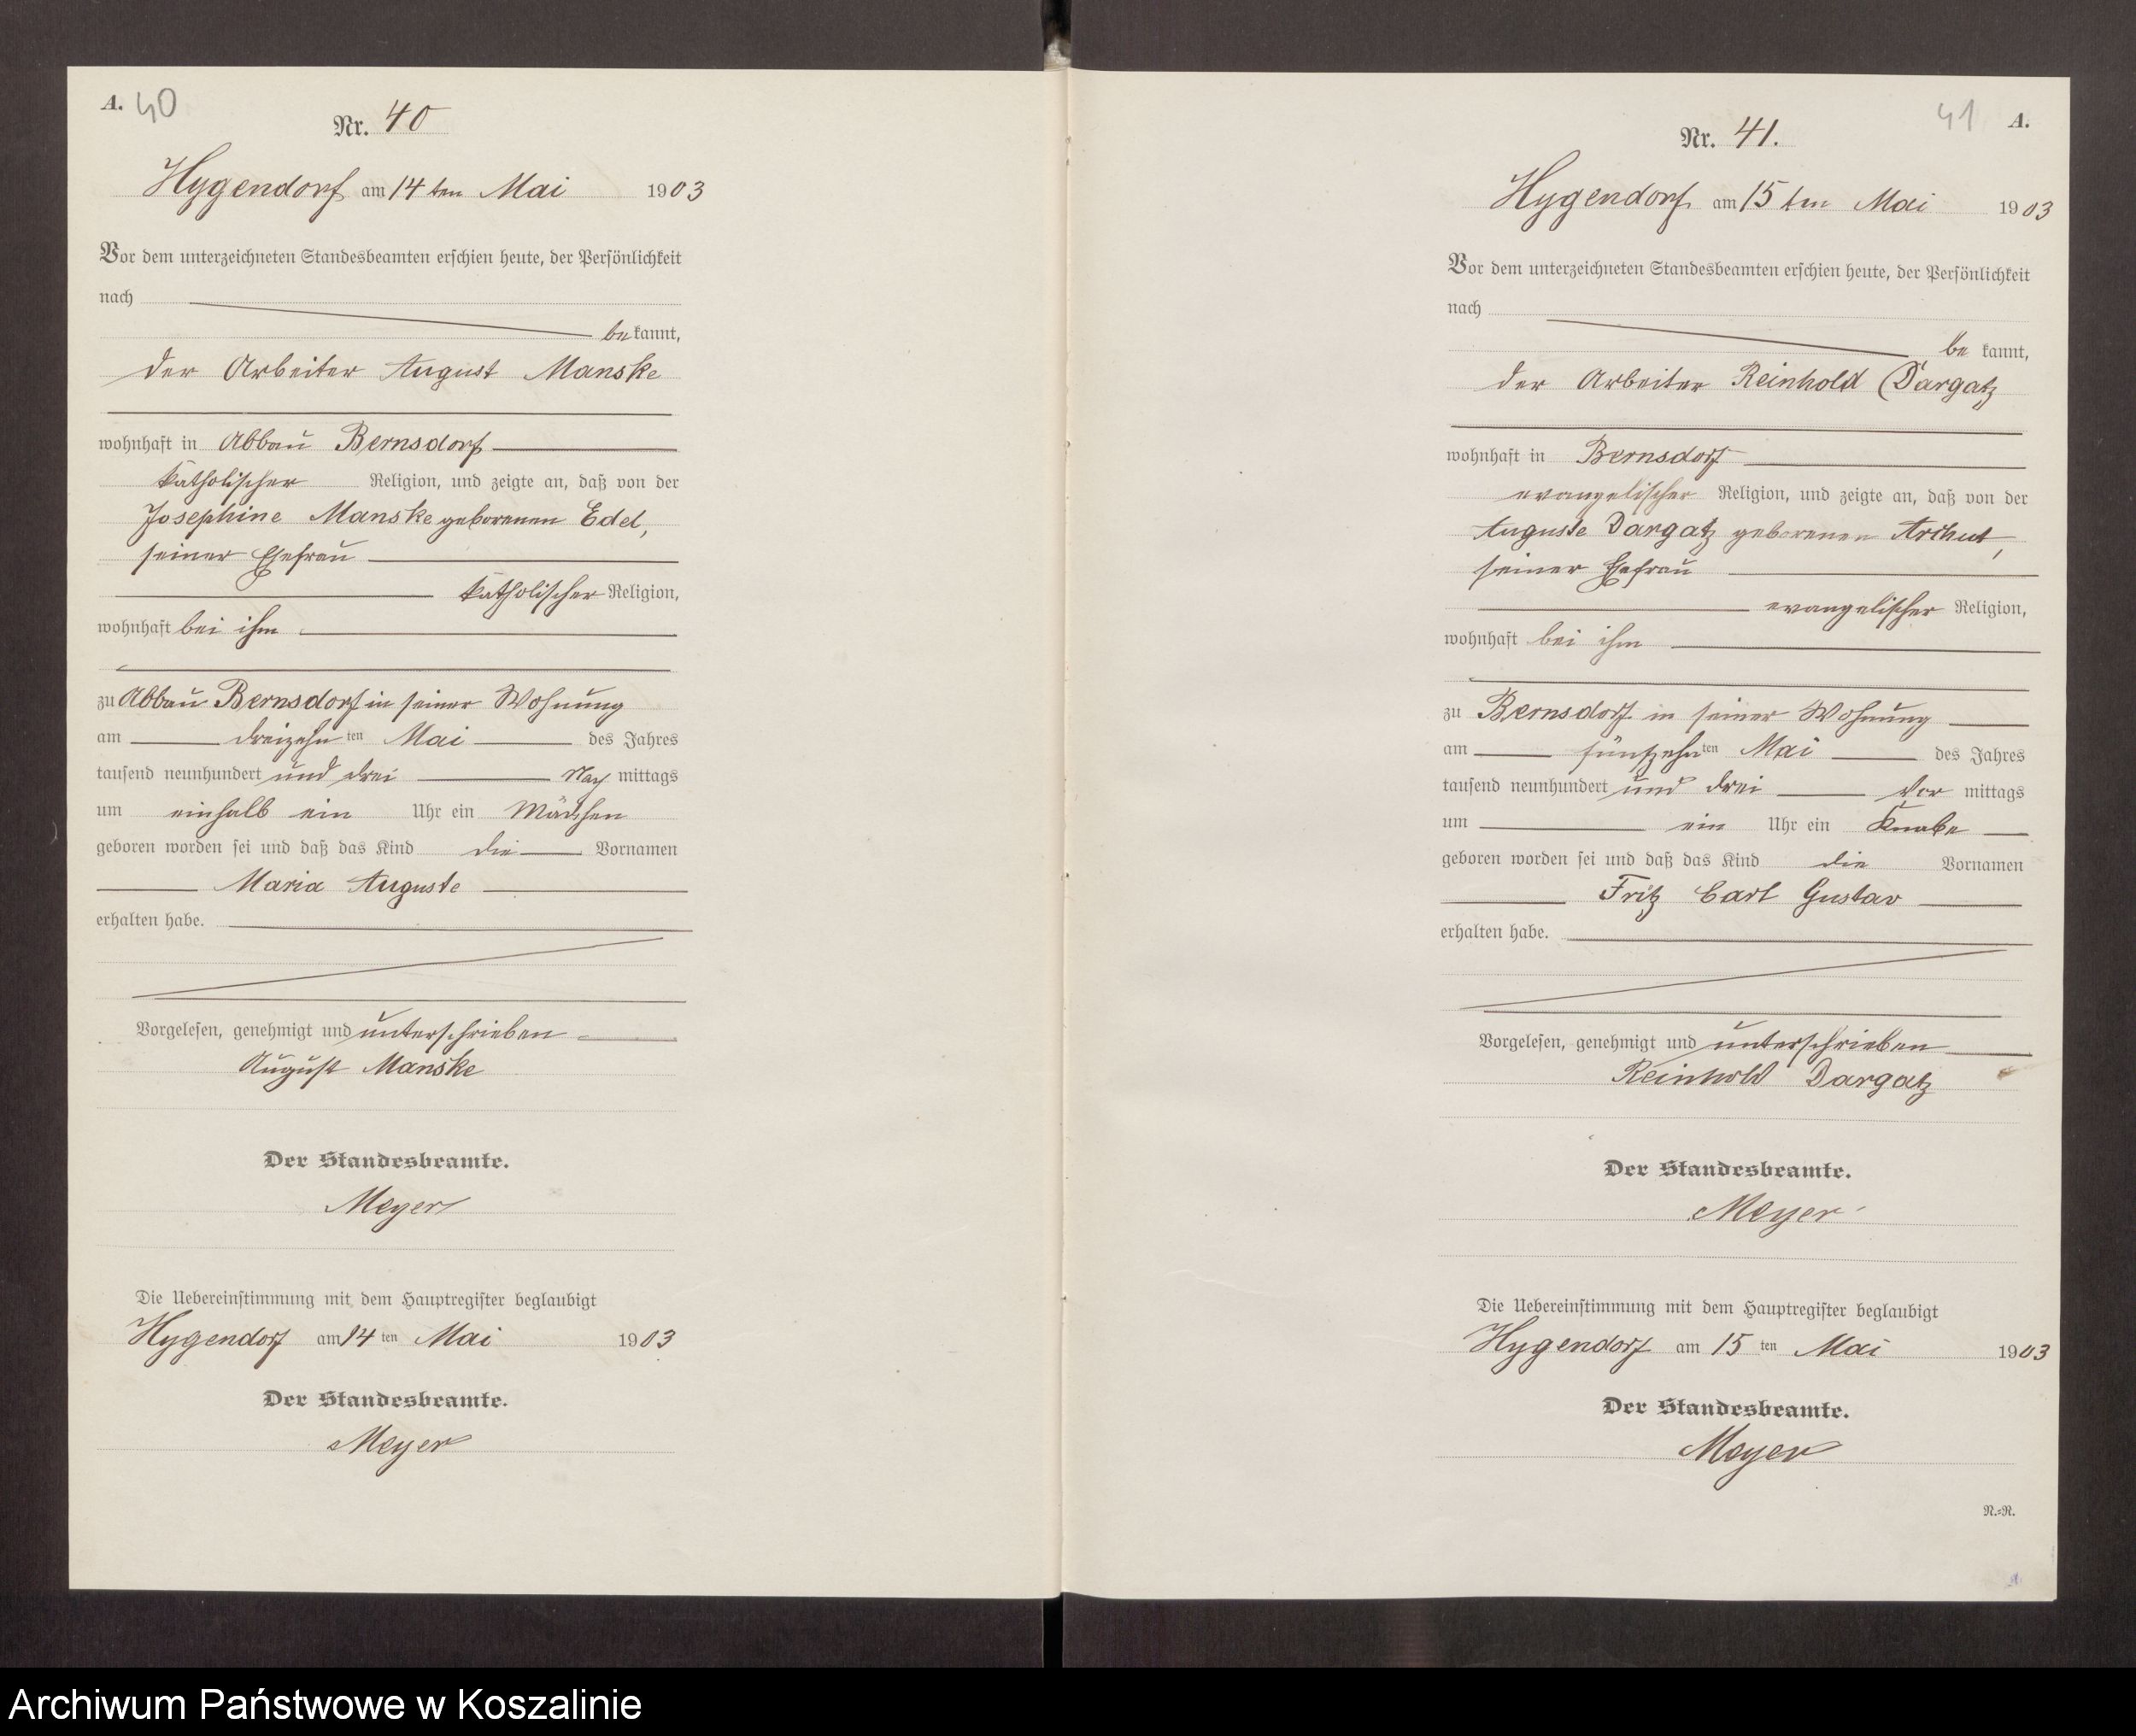 A. 40
Nr. 40
Hygendorf am 14ten Mai 1903
Vor dem unterzeichneten Standesbeamten erschien heute, der Persönlichkeit
nach
bekannt,
der Arbeiter August Manske
wohnhaft in Abbau Bernsdorf
katholischer Religion, und zeigte an, daß von der
Josephine Manske geborenen Edel,
seiner Ehefrau
katholischer Religion,
wohnhaft bei ihm
zu Abbau Bernsdorf in seiner Wohnung
am dreizehnten Mai des Jahres
tausend neunhundert und drei Nachmittags
um einhalb ein Uhr ein Mädchen
geboren worden sei und daß das Kind die Vornamen
Maria Auguste
erhalten habe.
Vorgelesen, genehmigt und unterschrieben
August Manske
Der Standesbeamte.
Meyer
Die Uebereinstimmung mit dem Hauptregister beglaubigt
Hygendorf am 14ten Mai 1903
Der Standesbeamte.
Meyer
41 A.
Nr. 41.
Hygendorf am 15ten Mai 1903
Vor dem unterzeichneten Standesbeamten erschien heute, der Persönlichkeit
nach
bekannt,
der Arbeiter Reinhold Dargatz
wohnhaft in Bernsdorf
evangelischer Religion, und zeigte an, daß von der
Auguste Dargatz geborenen
seiner Ehefrau
evangelischer Religion,
wohnhaft bei ihm
zu Bernsdorf in seiner Wohnung
am fünfzehnten Mai des Jahres
tausend neunhundert und drei Vormittags
um ein Uhr ein Knabe
geboren worden sei und daß das Kind die Vornamen
Fritz Carl Gustav
erhalten habe.
Vorgelesen, genehmigt und unterschrieben
Reinhold Dargatz
Der Standesbeamte.
Meyer
Die Uebereinstimmung mit dem Hauptregister beglaubigt
Hygendorf am 15ten Mai 1903
Der Standesbeamte.
Meyer
N.=R.
Archiwum Państwowe w Koszalinie